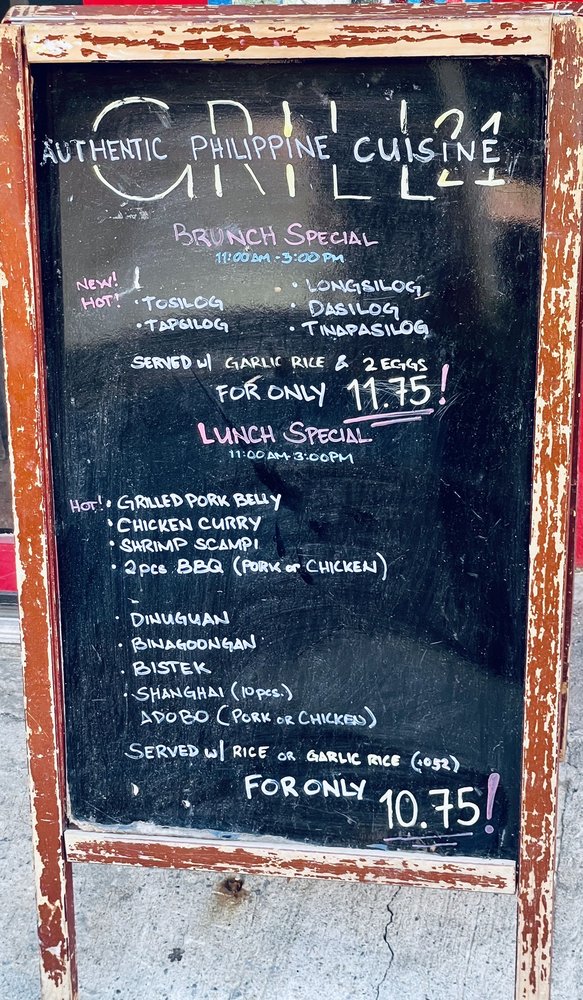 GRILL 21
AUTHENTIC PHILIPPINE CUISINE
BRUNCH SPECIAL
11:00AM-3:00PM
NEW!
HOT! • TOSILOG
• TAPSILOG
• LONGSILOG
• DASILOG
• TINAPASILOG
SERVED W/ GARLIC RICE & 2 EGGS
FOR ONLY 11.75!
LUNCH SPECIAL
11:00AM-3:00PM
HOT! • GRILLED PORK BELLY
• CHICKEN CURRY
• SHRIMP SCAMPI
• 2pcs BBQ (PORK or CHICKEN)
• DINUGUAN
• BINAGOONGAN
• BISTEK
• SHANGHAI (10pcs.)
ADOBO (PORK OR CHICKEN)
SERVED W/ RICE OR GARLIC RICE
FOR ONLY 10.75!